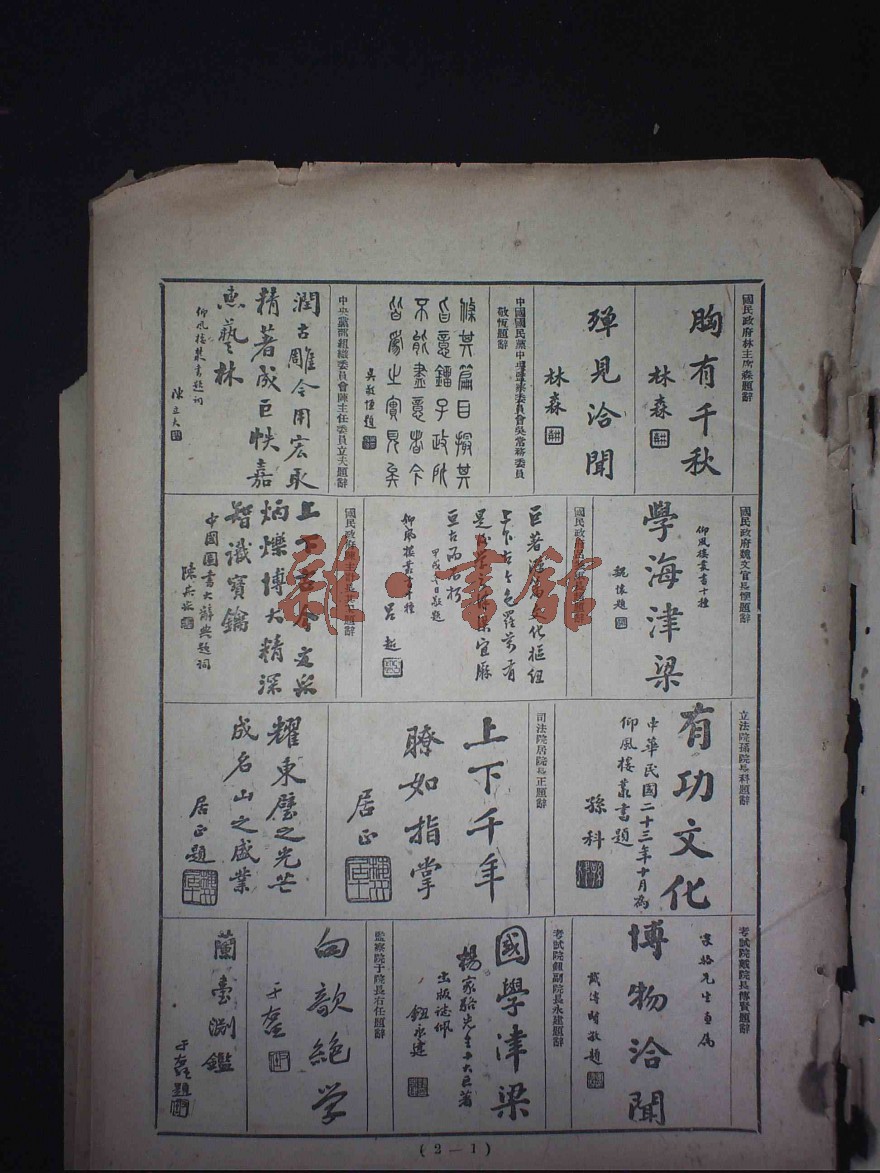 國民政府林主席森題辭
胸有千秋
林森
殫見洽聞
林森
中國國民黨中央監察委員會吳常務委員
敬恆題辭
條其篇目撮其
旨意鏐子政所
不能盡意者今
皆為之實見矣
吳敬恆題
中央黨部組織委員會陳主任委員立夫題辭
潤古雕今用宏取
精著成巨帙嘉
惠藝林
仰風樓叢書題詞
陳立夫
國民政府魏文官長懷題辭
仰風樓叢書十種
學海津梁
魏懷題
國民政府
題辭
巨著
文化樞紐
上下古今包羅萬有
宜縣
亘古而不朽
仰風樓叢書十種
呂超
國民政府
題辭
上下古今文采
炳爍博大精深
智識寶鑰
中國圖書大辭典題詞
立法院孫院長科題辭
有功文化
中華民國二十三年十月為
仰風樓叢書題
孫科
司法院居院長正題辭
上下千年
瞭如指掌
居正
耀東壁之光芒
成名山之盛業
居正題
考試院戴院長傳賢題辭
家駱先生惠屬
博物洽聞
戴傳賢敬題
考試院鈕副院長永建題辭
國學津梁
楊家駱先生十大巨著
出版誌佩
鈕永建
監察院于院長右任題辭
向歆絕学
于右任
蘭臺淵鑑
于右任題
(2—1)
雜·書館